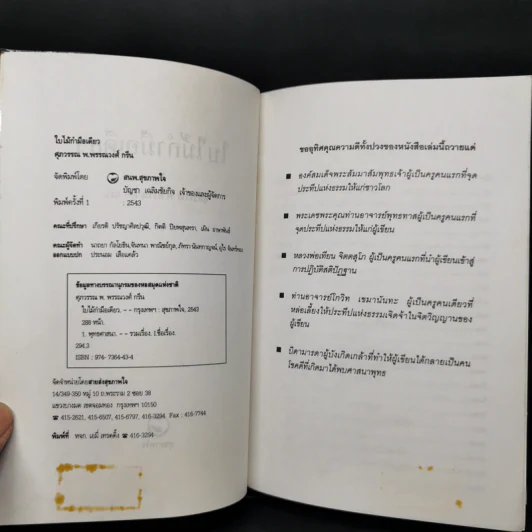 ใบไม้กำมือเดียว
ศุภวรรณ พ.พรรณวงศ์ กรีน
จัดพิมพ์โดย สนพ.สุขภาพใจ
บัญชา เฉลิมชัยกิจ เจ้าของและผู้จัดการ
พิมพ์ครั้งที่ 1 : 2543
คณะที่ปรึกษา เกียรติ ปรัชญาศิลปวุฒิ, กิตติ ปิยพสุนทรา, เนิน ภาษาพันธ์
คณะผู้จัดทำ
ออกแบบปก ประนอม เสือแคล้ว
ข้อมูลทางบรรณานุกรมของหอสมุดแห่งชาติ
ศุภวรรณ พ. พรรณวงศ์ กรีน
ใบไม้กำมือเดียว. -- กรุงเทพฯ : สุขภาพใจ, 2543
288 หน้า.
1. พุทธศาสนา. -- รวมเรื่อง. I.ชื่อเรื่อง.
294.3
ISBN : 974- 7364-43-4
จัดจำหน่ายโดยสายส่งสุขภาพใจ
14/349-350 หมู่ 10 ถ.พระราม 2 ซอย 38
แขวงบางมด เขตจอมทอง กรุงเทพฯ 10150
☎ 415-2621, 415-6507, 415-6797, 416-3294 Fax : 416-7744
พิมพ์ที่ หจก. เอมี่ เทรดดิ้ง ☎ 416-3294
ขออุทิศคุณความดีทั้งปวงของหนังสือเล่มนี้ถวายแด่
องค์สมเด็จพระสัมมาสัมพุทธเจ้าผู้เป็นครูคนแรกที่จุด
ประทีปแห่งธรรมให้แก่ชาวโลก
พระเดชพระคุณท่านอาจารย์พุทธทาสผู้เป็นครูคนแรกที่
จุดประทีปแห่งธรรมให้แก่ผู้เขียน
หลวงพ่อเทียน จิตตสุโภ ผู้เป็นครูคนแรกที่นำผู้เขียนเข้าสู่
การปฏิบัติสติปัฏฐาน
ท่านอาจารย์โกวิท เขมานันทะ ผู้เป็นครูคนเดียวที่
หล่อเลี้ยงให้ประทีปแห่งธรรมเจิดจ้าในจิตวิญญาณของ
ผู้เขียน
บิดามารดาผู้บังเกิดเกล้าที่ทำให้ผู้เขียนได้กลายเป็นคน
โชคดีที่เกิดมาได้พบศาสนาพุทธ